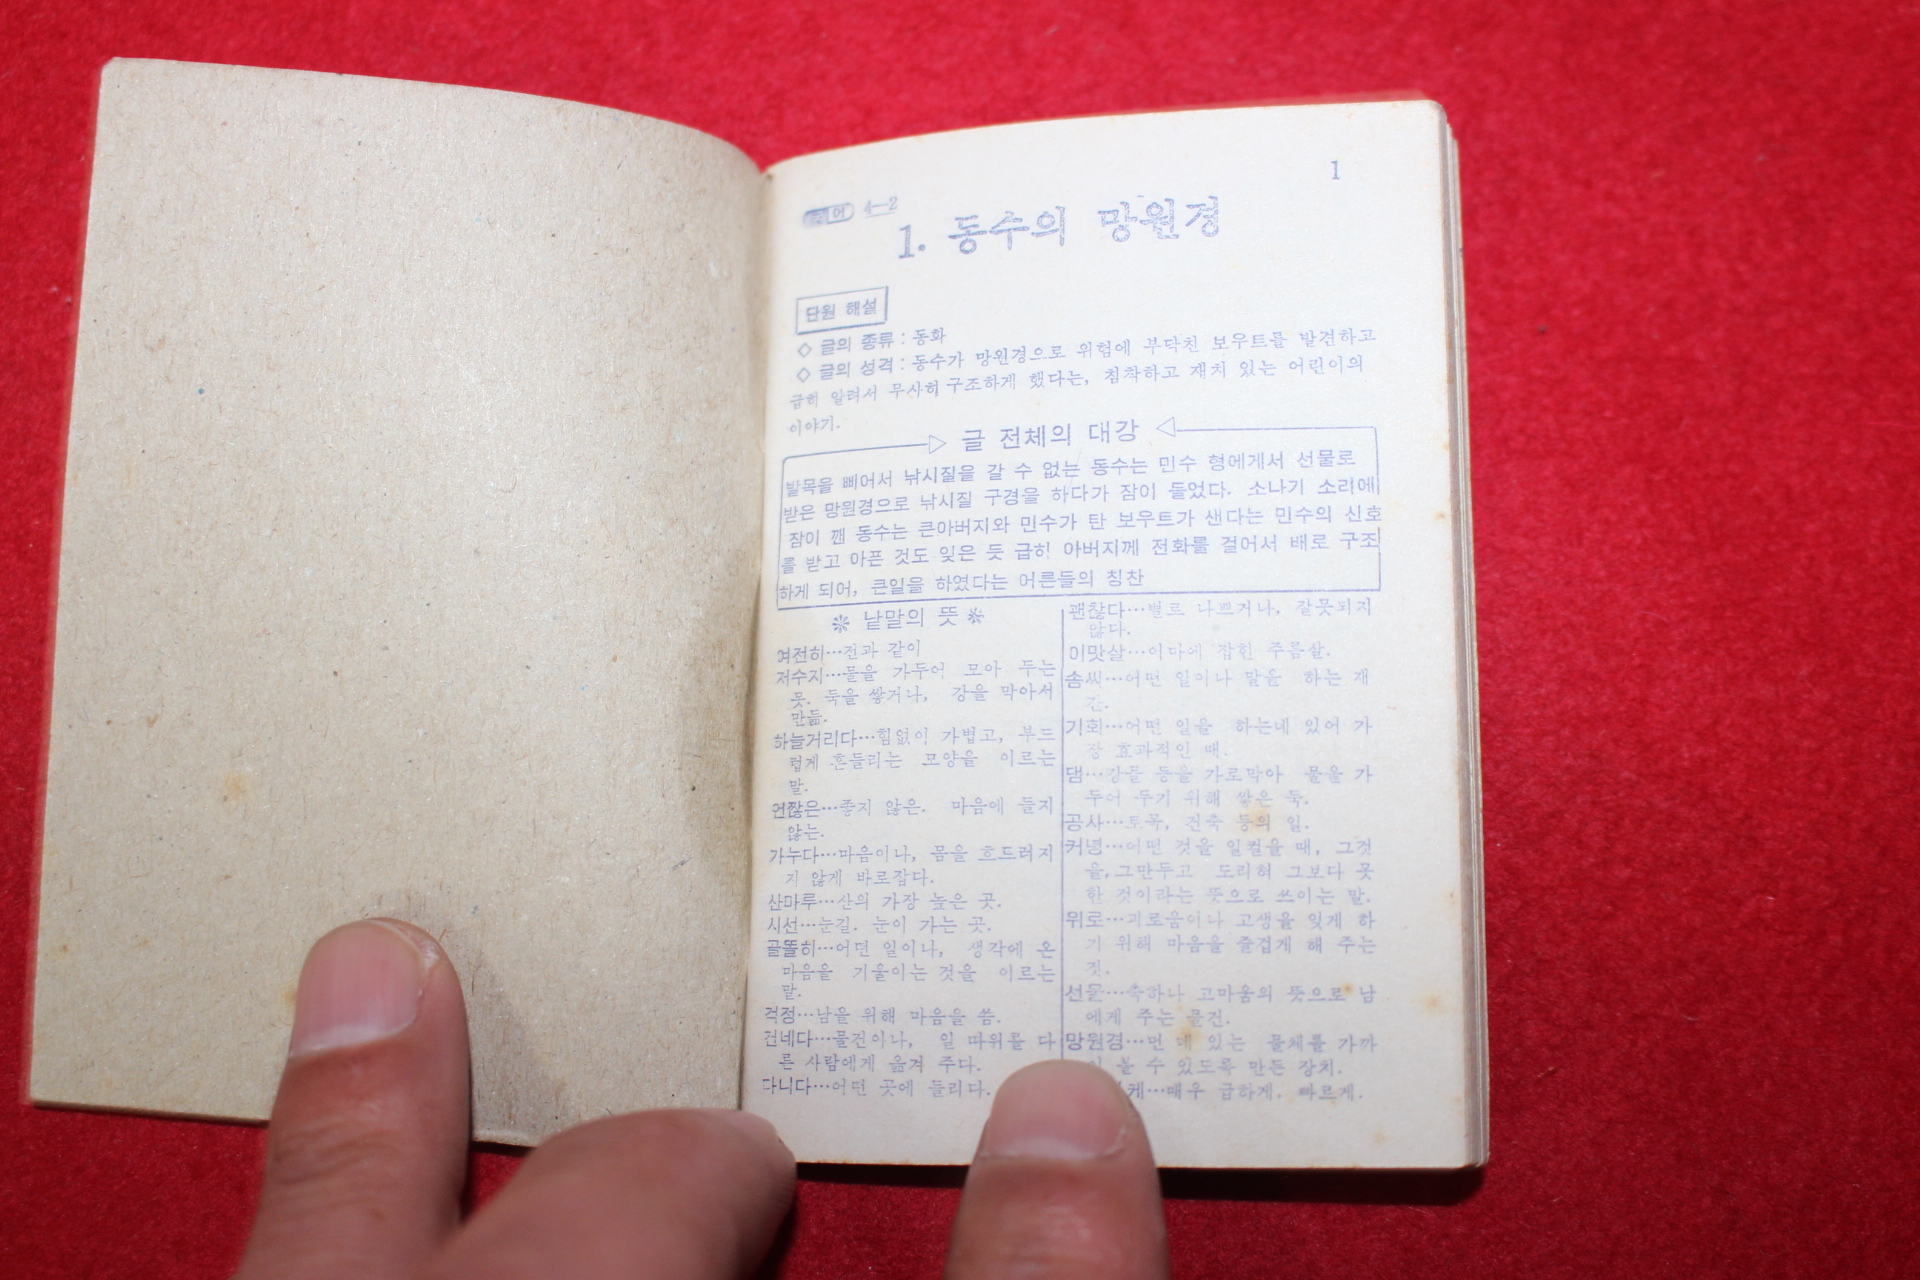 1
국어 4—2
1. 동수의 망원경
단원 해설
◇ 글의 종류 : 동화
◇ 글의 성격 : 동수가 망원경으로 위험에 부닥친 보우트를 발견하고
급히 알려서 무사히 구조하게 했다는, 침착하고 재치 있는 어린이의
이야기.
글 전체의 대강
발목을 삐어서 낚시질을 갈 수 없는 동수는 민수 형에게서 선물로
받은 망원경으로 낚시질 구경을 하다가 잠이 들었다. 소나기 소리에
잠이 깬 동수는 큰아버지와 민수가 탄 보우트가 샌다는 민수의 신호
를 받고 아픈 것도 잊은 듯 급히 아버지께 전화를 걸어서 배로 구조
하게 되어, 큰일을 하였다는 어른들의 칭찬
※ 낱말의 뜻 ※
여전히…전과 같이
저수지…물을 가두어 모아 두는
못. 둑을 쌓거나, 강을 막아서
만듦.
하늘거리다…힘없이 가볍고, 부드
럽게 흔들리는 모양을 이르는
말.
언짢은…좋지 않은. 마음에 들지
않는.
가누다…마음이나, 몸을 흐드러지
지 않게 바로잡다.
산마루…산의 가장 높은 곳.
시선…눈길. 눈이 가는 곳.
골똘히…어떤 일이나, 생각에 온
마음을 기울이는 것을 이르는
말.
걱정…남을 위해 마음을 씀.
건네다…물건이나, 일 따위를 다
른 사람에게 옮겨 주다.
다니다…어떤 곳에 들리다.
괜찮다…별로 나쁘거나, 잘못되지
않다.
이맛살…이마에 잡힌 주름살.
솜씨…어떤 일이나 말을 하는 재
간.
기회…어떤 일을 하는데 있어 가
장 효과적인 때.
댐…강물 등을 가로막아 물을 가
두어 두기 위해 쌓은 둑.
공사…토목, 건축 등의 일.
커녕…어떤 것을 일컬을 때, 그것
을, 그만두고 도리혀 그보다 못
한 것이라는 뜻으로 쓰이는 말.
위로…괴로움이나 고생을 잊게 하
기 위해 마음을 즐겁게 해 주는
것.
선물…축하나 고마움의 뜻으로 남
에게 주는 물건.
망원경…먼 데 있는 물체를 가까
이 볼 수 있도록 만든 장치.
케…매우 급하게. 빠르게.